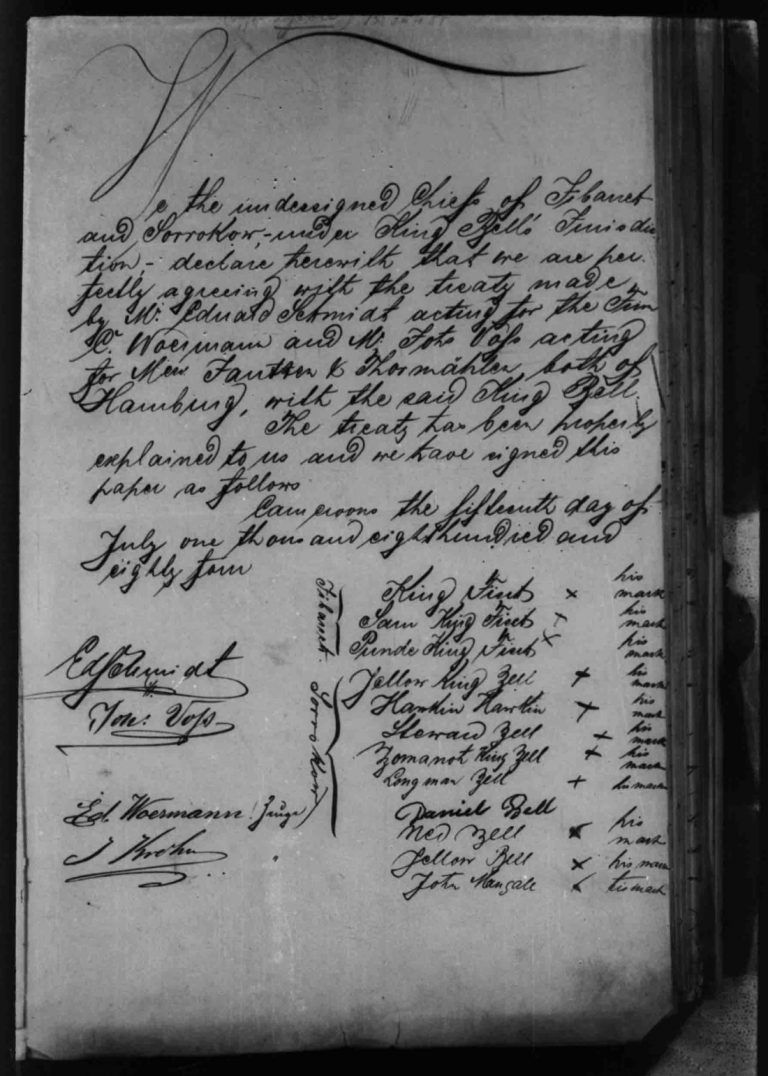 We the undersigned Chiefs of Tibanet
and Sorrokow, - under King Bell's Jurisdic
tion, - declare herewith that we are per
fectly agreeing with the treaty made
by Mr. Eduard Schmidt acting for the Firm
C. Woermann and Mr. Johs Voss acting
for Messrs Jantzen & Thormählen, both of
Hamburg, with the said King Bell.
The treaty has been properly
explained to us and we have signed this
paper as follows
Cameroons the fifteenth day of
July one thousand eighthundred and
eighty four
Tibanet.
King x his mark
Sam King x his mark
Punde King x his mark
EdSchmidt
Joh: Voss
Sorrokow
Jellow King Bell + his mark
Hawkin Hawkin + his mark
Steward Bell + his mark
Zomanot King Bell + his mark
Longman Bell + his mark
Ed. Woermann (Zeuge)
J Krohn "
Daniel Bell
Ned Bell x his mark
Jellow Bell x his mark
John Mangale x his mark